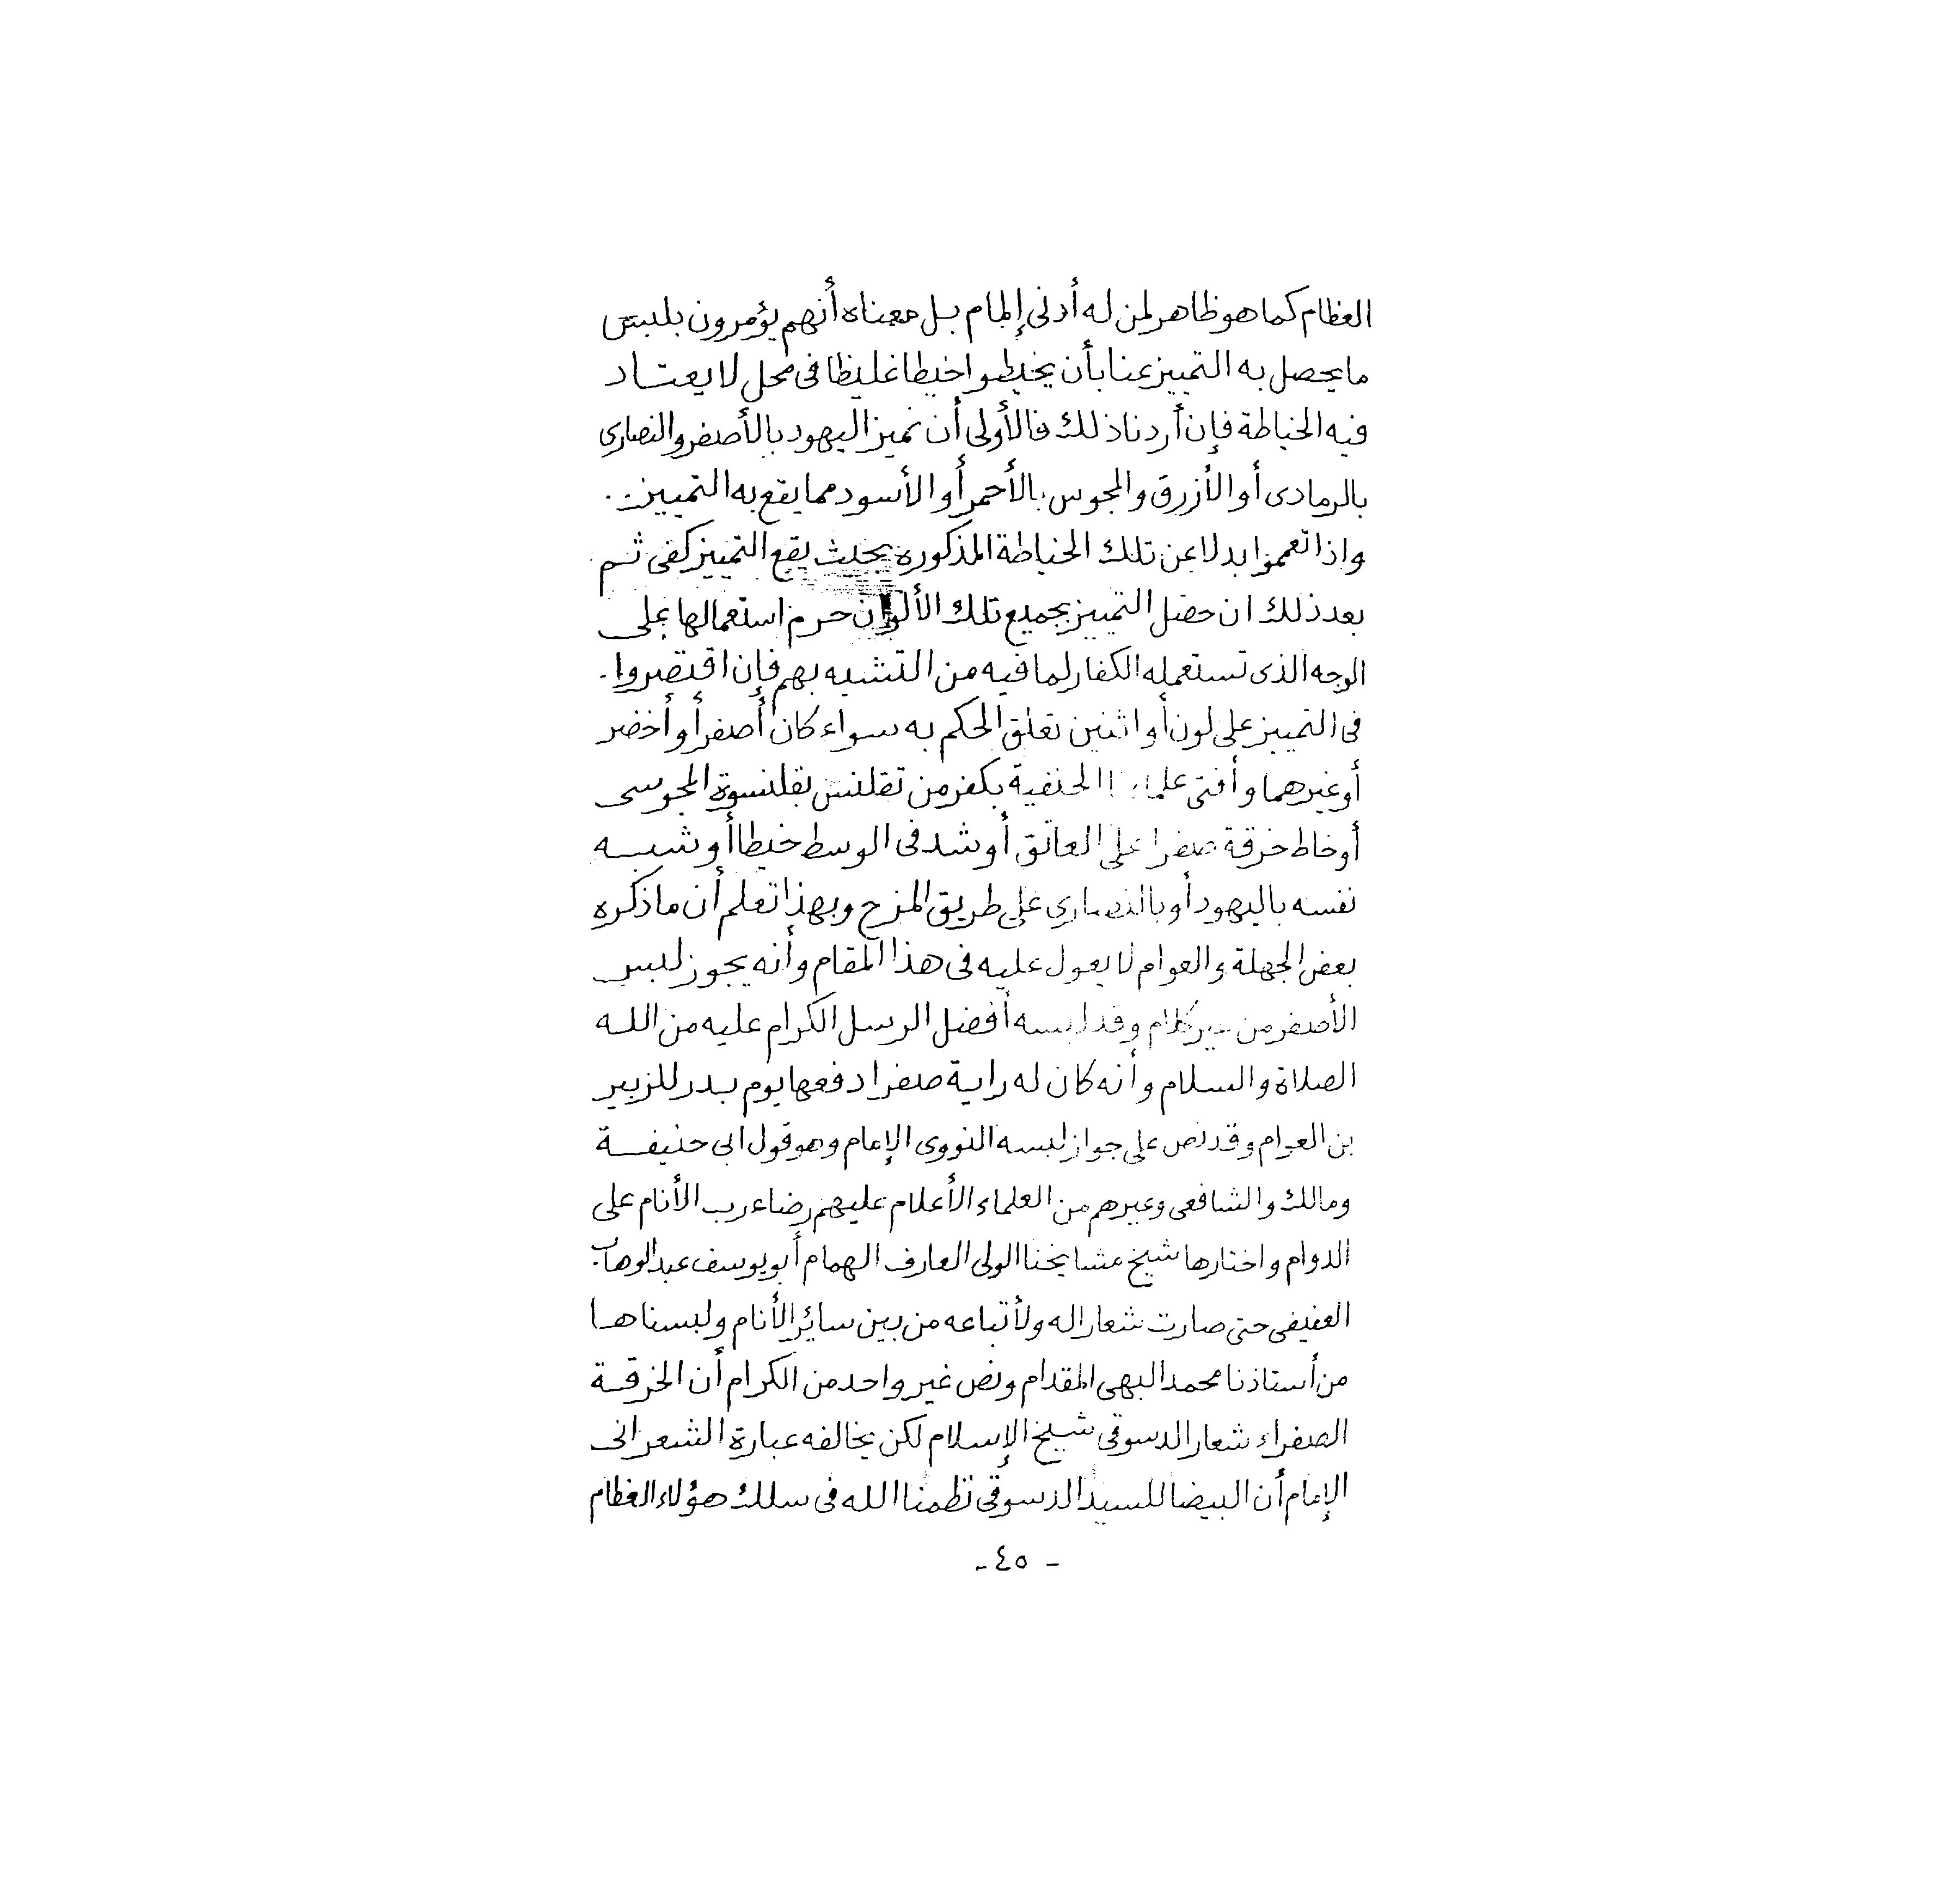 العظام كما هو ظاهر لمن له أدنى إلمام بل معناه أنهم يؤمرون بلبس
ما يحصل به التمييز عنا بأن يخيطوا خيطا غليظا فى محل لا يعتاد
فيه الخياطة فإن أردنا ذلك فالأولى أن نميز اليهود بالأصفر والنصارى
بالرمادى أو الأزرق والمجوس بالأحمر أو الأسود مما يقع به التمييز .
واذا تعمموا بدلا عن تلك الخياطة المذكوره بحيث يقع التمييز كفى ثم
بعد ذلك ان حصل التمييز بجميع تلك الألوان حرم استعمالها على
الوجه الذى تستعمله الكفار لما فيه من التشبه بهم فإن اقتصروا .
فى التمييز على لون أو اثنين تعلق الحكم به سواء كان أصفر أو أخضر
أو غيرهما وأفتى الحنفية بكفر من تقلنس بقلنسوة المجوسى
أو خاط خرقة صفرا على العاتق أو شد فى الوسط خيطا أو شبه
نفسه باليهود أو بالنصارى على طريق المزح وبهذا تعلم أن ما ذكره
بعض الجهلة والعوام لا يعول عليه فى هذا المقام وأنه يجوز لبس
الأصفر من غير كلام وقد لبسه أفضل الرسل الكرام عليه من الله
الصلاة والسلام وأنه كان له راية صفرا دفعها يوم بدر للزبير
بن العوام وقد نص على جواز لبسه النووى الإمام وهو قول ابى حنيفة
ومالك والشافعى وغيرهم من العلماء الأعلام عليهم رضاء رب الأنام على
الدوام واختارها شيخ مشايخنا الولى العارف الهمام أبو يوسف عبدالوهاب
العفيفى حتى صارت شعارا له ولأتباعه من بين سائر الأنام ولبسناها
من أستاذنا محمد البهى المقدام ونص غير واحد من الكرام أن الخرقة
الصفراء شعار الدسوقى شيخ الإسلام لكن يخالفه عبارة الشعرانى
الإمام أن البيضا للسيد الدسوقى نظمنا الله فى سلك هؤلاء العظام
- ٤٥ -